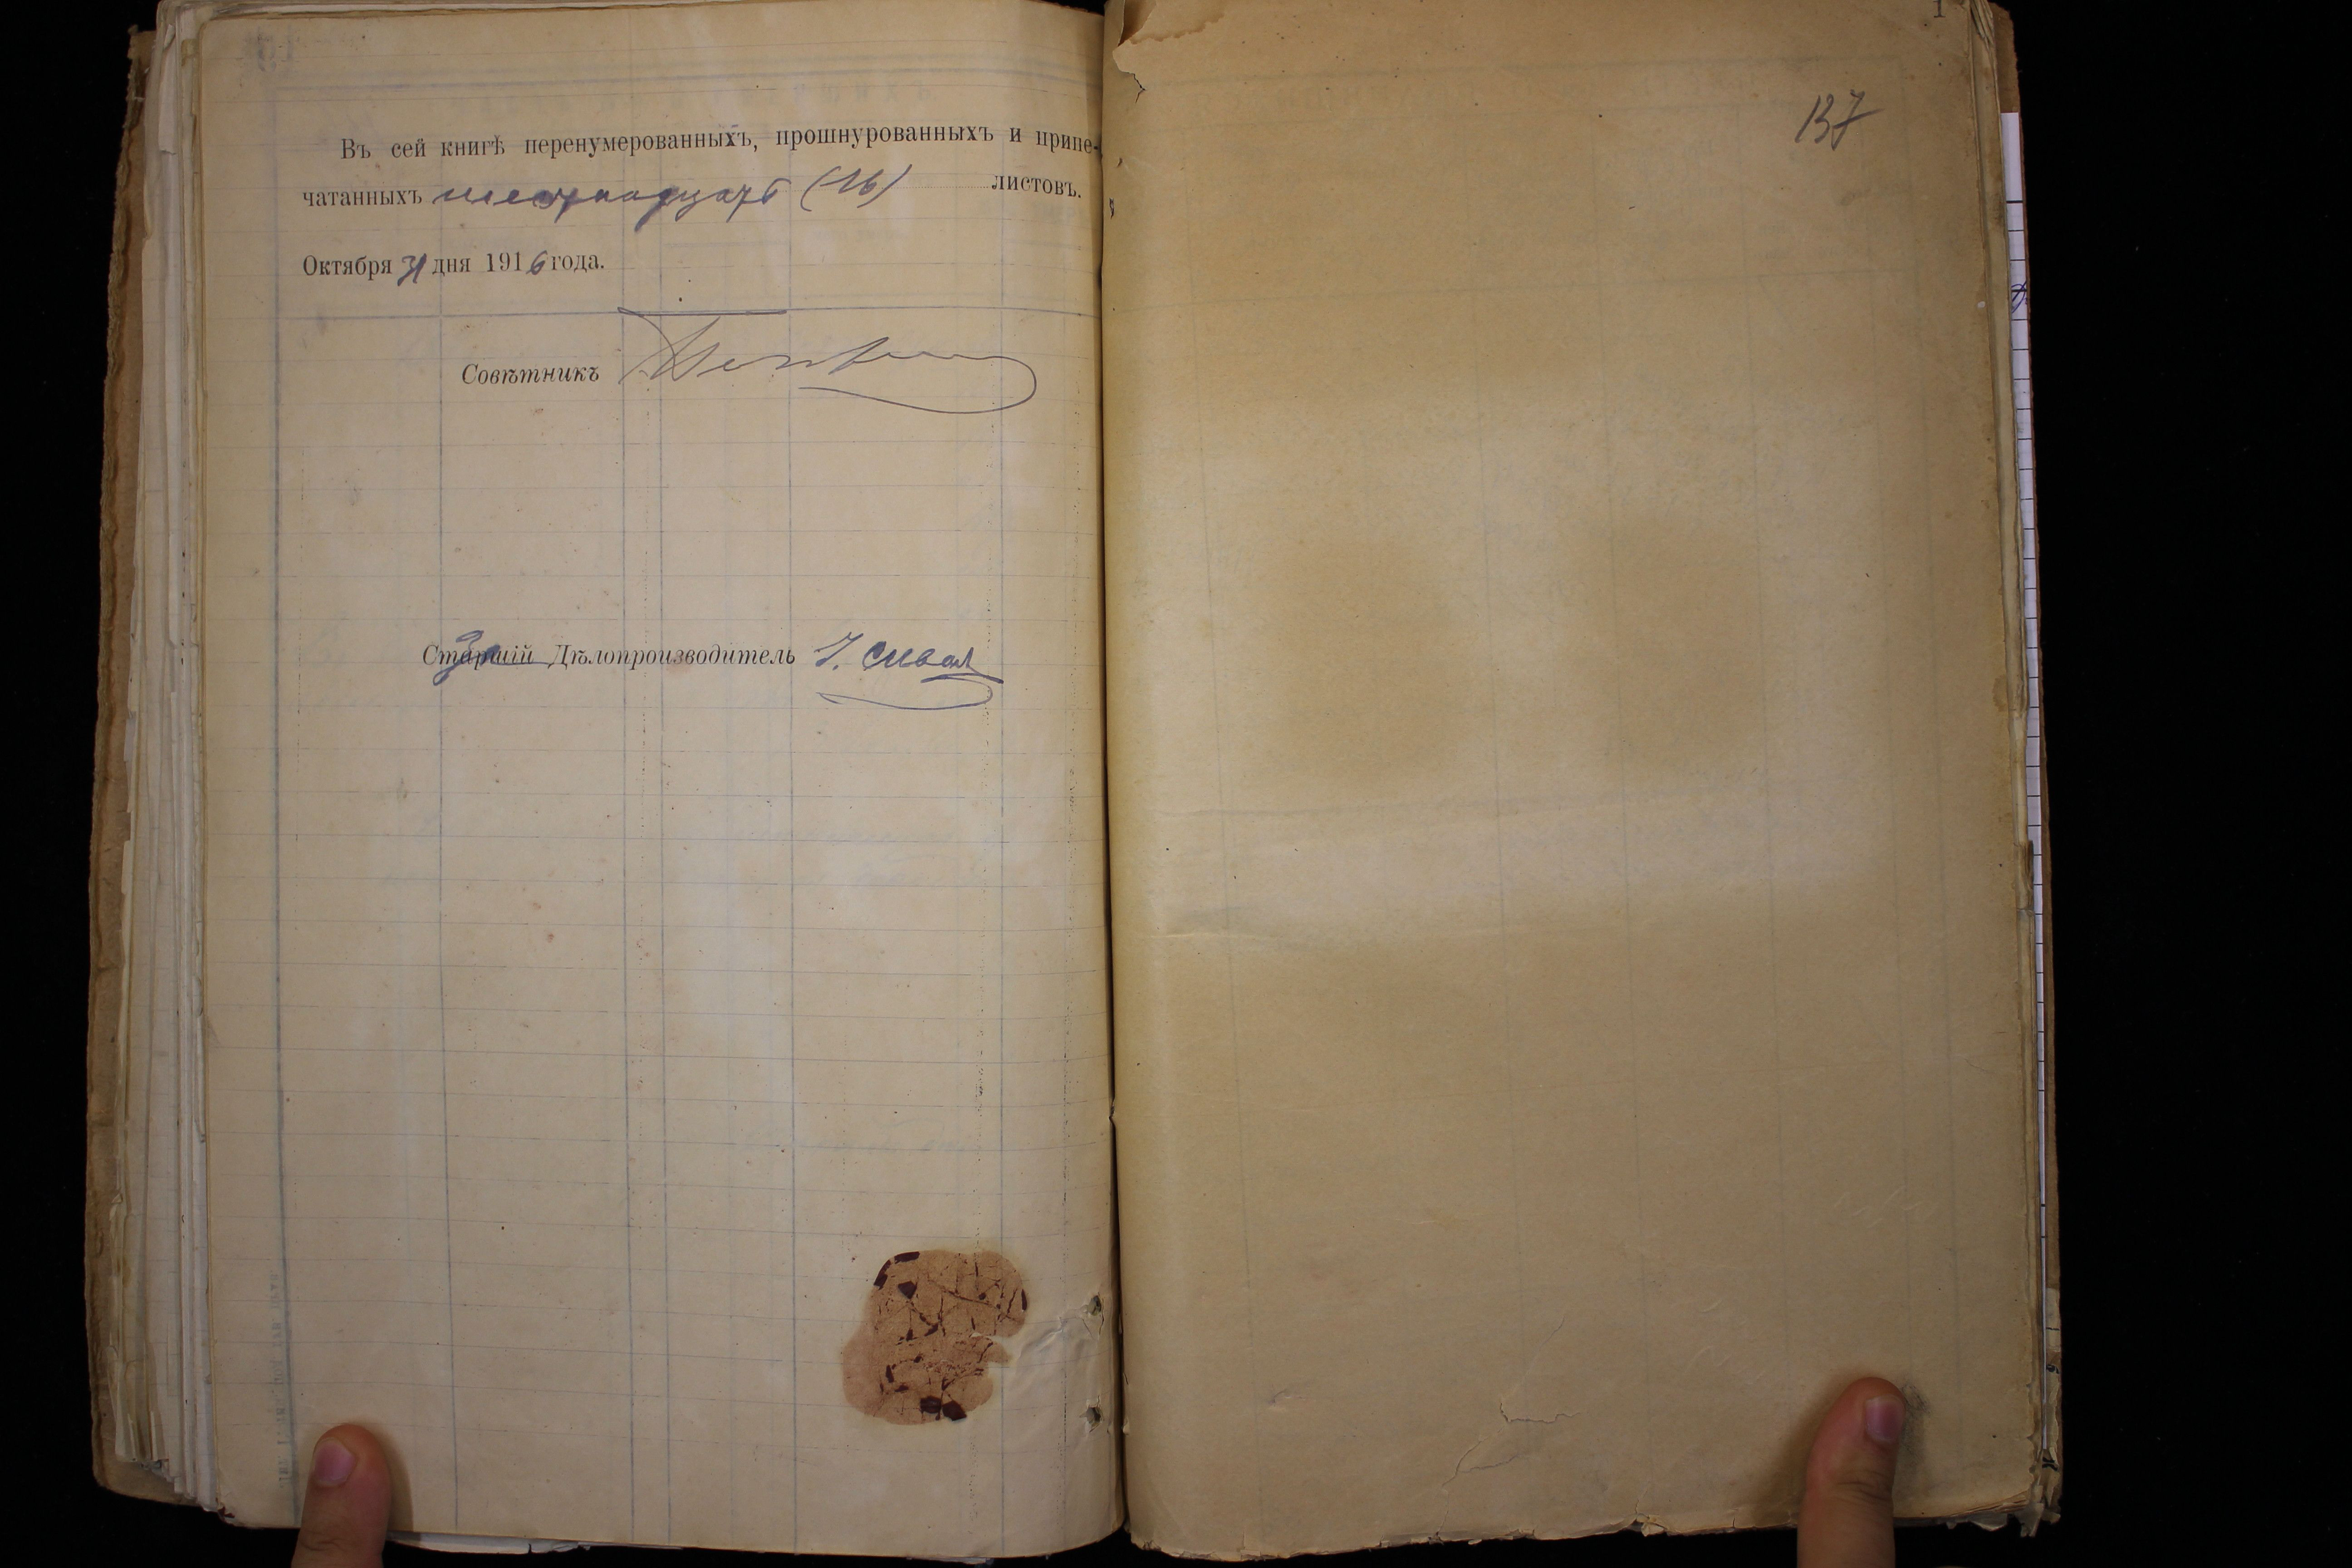 Въ сей книгѣ перенумерованныхъ, прошнурованныхъ и припе-
чатанныхъ шестнадцать (16) листовъ.
Октября 31 дня 1916 года.
Совѣтникъ
Старшій Дѣлопроизводитель
137
1